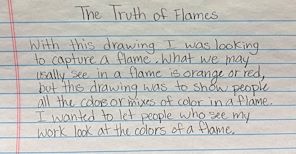 The Truth of Flames
With this drawing I was looking
to capture a flame. What we may
usally see in a flame is orange or red,
but this drawing was to show people
all the colors or mixes of color in a flame.
I wanted to let people who see my
work look at the colors of a flame.